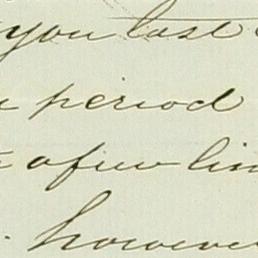 you last
period
a few lin
however